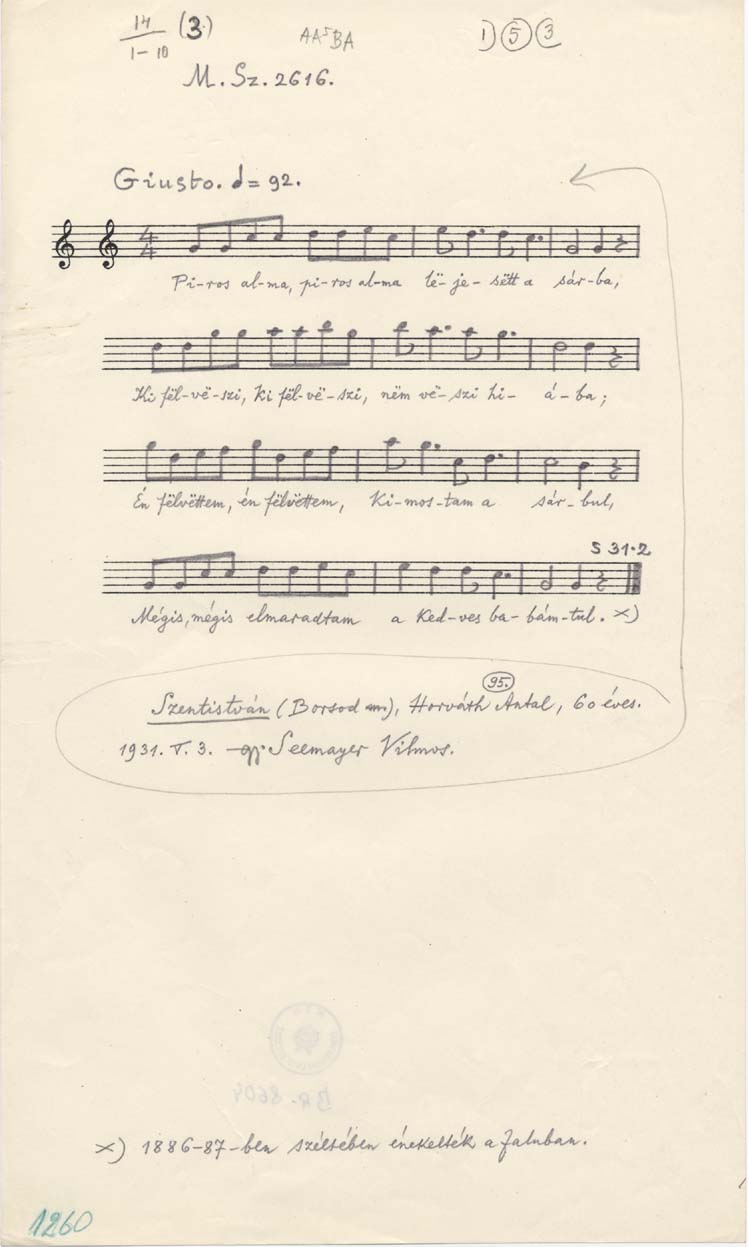 14 (3.) AA⁵BA 1) 5 3
1-10
M. Sz. 2616.
Giusto. d = 92.
4
4
Pi-ros al-ma, pi-ros al-ma lë-je-sëtt a sár-ba,
Ki fël-vë-szi, ki fël-vë-szi, nëm vë-szi hi- á-ba;
Én fëlvëttem, én fëlvëttem, Ki-mos-tam a sár-bul,
S 31.2
Mégis, mégis elmaradtam a Ked-ves ba-bám-tul. x)
95.
Szentistván (Borsod m.), Horváth Antal, 60 éves.
1931. V. 3. Seemayer Vilmos.
BR. 8604
x) 1886-87-ben széltében énekelték a faluban.
1260